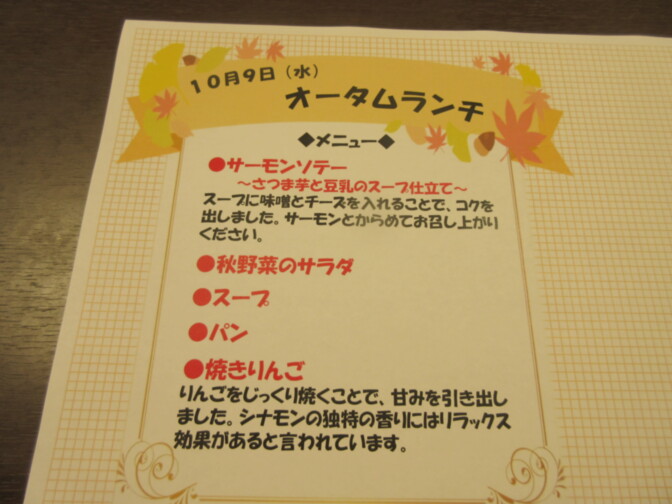 10月9日（水）
オータムランチ
◆メニュー◆
●サーモンソテー
～さつま芋と豆乳のスープ仕立て～
スープに味噌とチーズを入れることで、コクを
出しました。サーモンとからめてお召し上がり
ください。
●秋野菜のサラダ
●スープ
●パン
●焼きりんご
りんごをじっくり焼くことで、甘みを引き出し
ました。シナモンの独特の香りにはリラックス
効果があると言われています。